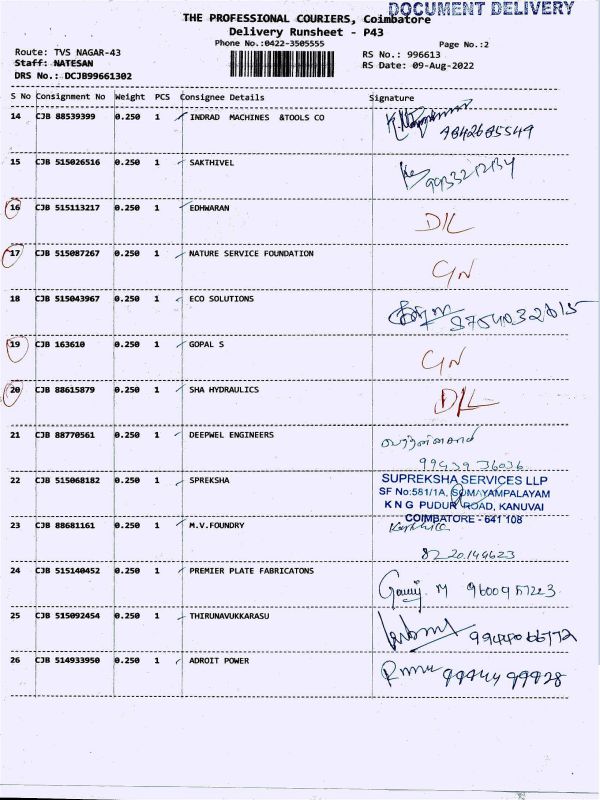 DOCUMENT DELIVERY
THE PROFESSIONAL COURIERS, Coimbatore
Delivery Runsheet - P43
Phone No.:0422-3505555
Page No.:2
Route: TVS NAGAR-43
RS No.: 996613
Staff: NATESAN
RS Date: 09-Aug-2022
DRS No.: DCJB99661302
S No Consignment No Weight PCS Consignee Details Signature
14 CJB 88539399 0.250 1 INDRAD MACHINES &TOOLS CO
9842685549
15 CJB 515026516 0.250 1 SAKTHIVEL
16 CJB 515113217 0.250 1 EDHWARAN D/L
17 CJB 515087267 0.250 1 NATURE SERVICE FOUNDATION
18 CJB 515043967 0.250 1 ECO SOLUTIONS
19 CJB 163610 0.250 1 GOPAL S
20 CJB 88615879 0.250 1 SHA HYDRAULICS D/L
21 CJB 88770561 0.250 1 DEEPWEL ENGINEERS
22 CJB 515068182 0.250 1 SPREKSHA
SUPREKSHA SERVICES LLP
SF No:581/1A, SOMAYAMPALAYAM
K N G PUDUR ROAD, KANUVAI
COIMBATORE - 641 108
23 CJB 88681161 0.250 1 M.V.FOUNDRY
8220149623
24 CJB 515140452 0.250 1 PREMIER PLATE FABRICATONS
25 CJB 515092454 0.250 1 THIRUNAVUKKARASU
26 CJB 514933950 0.250 1 ADROIT POWER